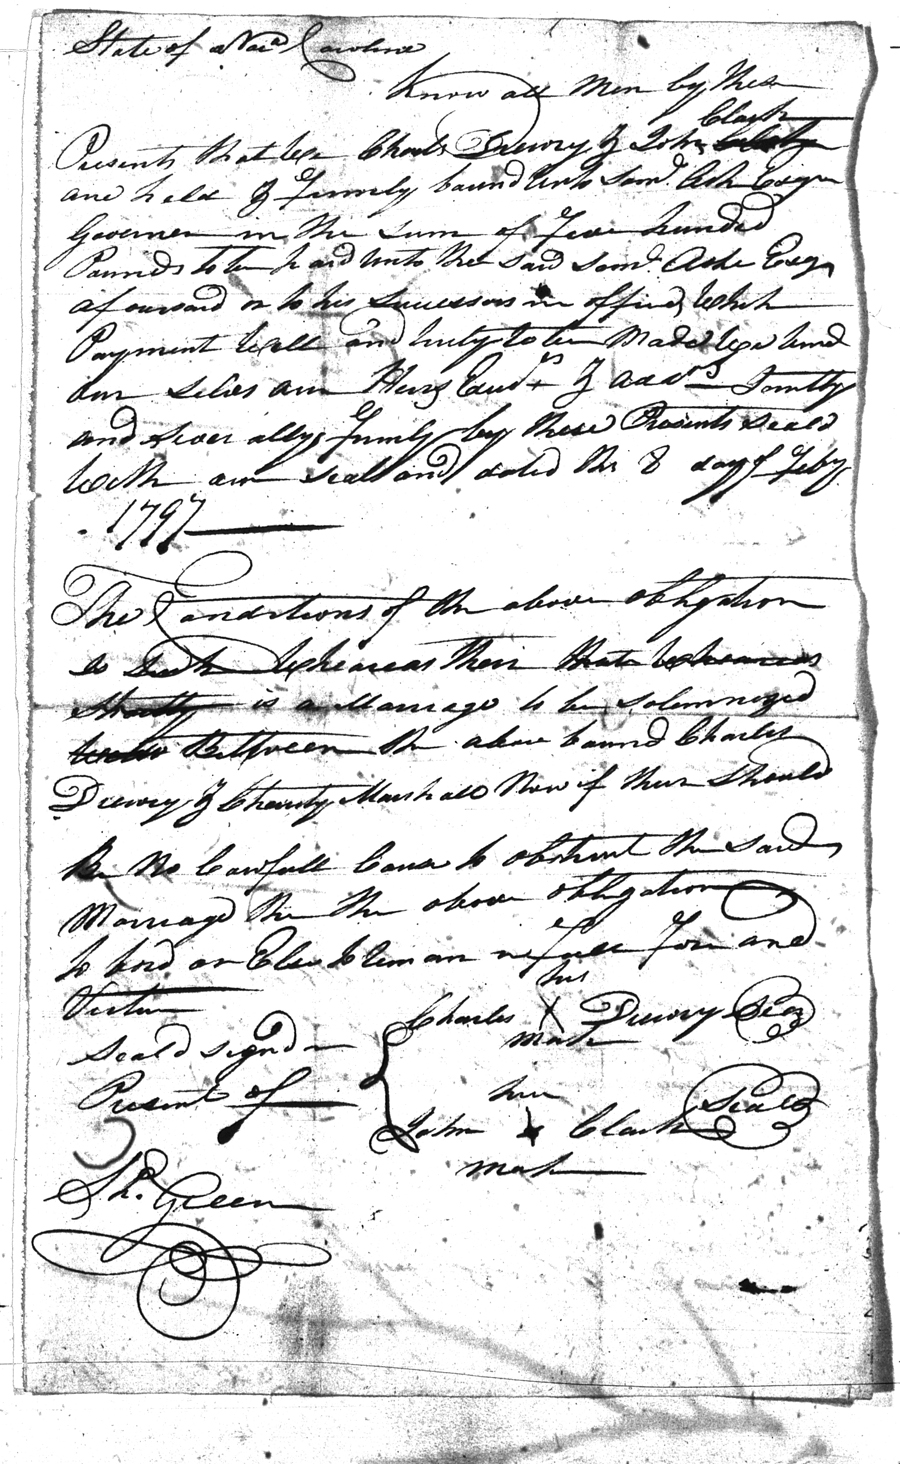 State of No Carolina
Know all Men by these
Clark
Presents that We Charls Drewry & John
are held & firmely bound unto Saml. Ash Esqr
Governer in the sum of five hundred
Pounds to be paid unto the said Saml. Ashe Esqr
afoursaid or to his successors in office, which
Payment Well and truly to be Made We bind
our selves our Heirs Exers & adms Jointly
and severally, firmly by these Presents Seald
With our seals and dated this 8 day of Feby
1797
The Conditions of the above obligation
is Such Whereas their that Whereas
is a Marriage to be solemnized
Between the above bound Charles
Drewry & Charity Marshall Now if their Should
Be No Lawfull Cause to obstruct the said
Marriage then the above obligation
to be void or Else to Remain in full force and
Virtue
his
Charles X Drewry Seal
mark
Seald signd
Present of
his
John x Clark Seal
mark
Sh. Green